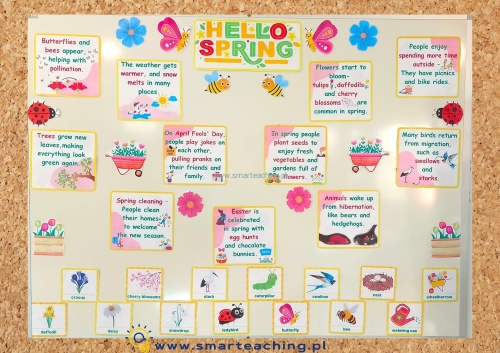 HELLO
SPRING
Butterflies and
bees appear,
helping with
pollination.
The weather gets
warmer, and snow
melts in many
places.
Flowers start to
bloom-
tulips, daffodils
and cherry
blossoms are
common in spring.
People enjoy
spending more time
outside -
They have picnics
and bike rides.
Trees grow new
leaves, making
everything look
green again.
On April Fools' Day,
people play jokes on
each other,
pulling pranks on
their friends and
family.
In spring people
plant seeds to
enjoy fresh
vegetables and
gardens full of
flowers.
Many birds return
from migration,
such as
swallows
and
storks.
www.smarteaching.pl
Spring cleaning -
People clean
their homes
to welcome
the new season.
Easter is
celebrated
in spring with
egg hunts
and chocolate
bunnies.
Animals wake up
from hibernation,
like bears and
hedgehogs.
crocus
cherry blossoms
stork
caterpillar
swallow
nest
wheelbarrow
daffodil
daisy
snowdrop
ladybird
butterfly
bee
watering can
www.smarteaching.pl